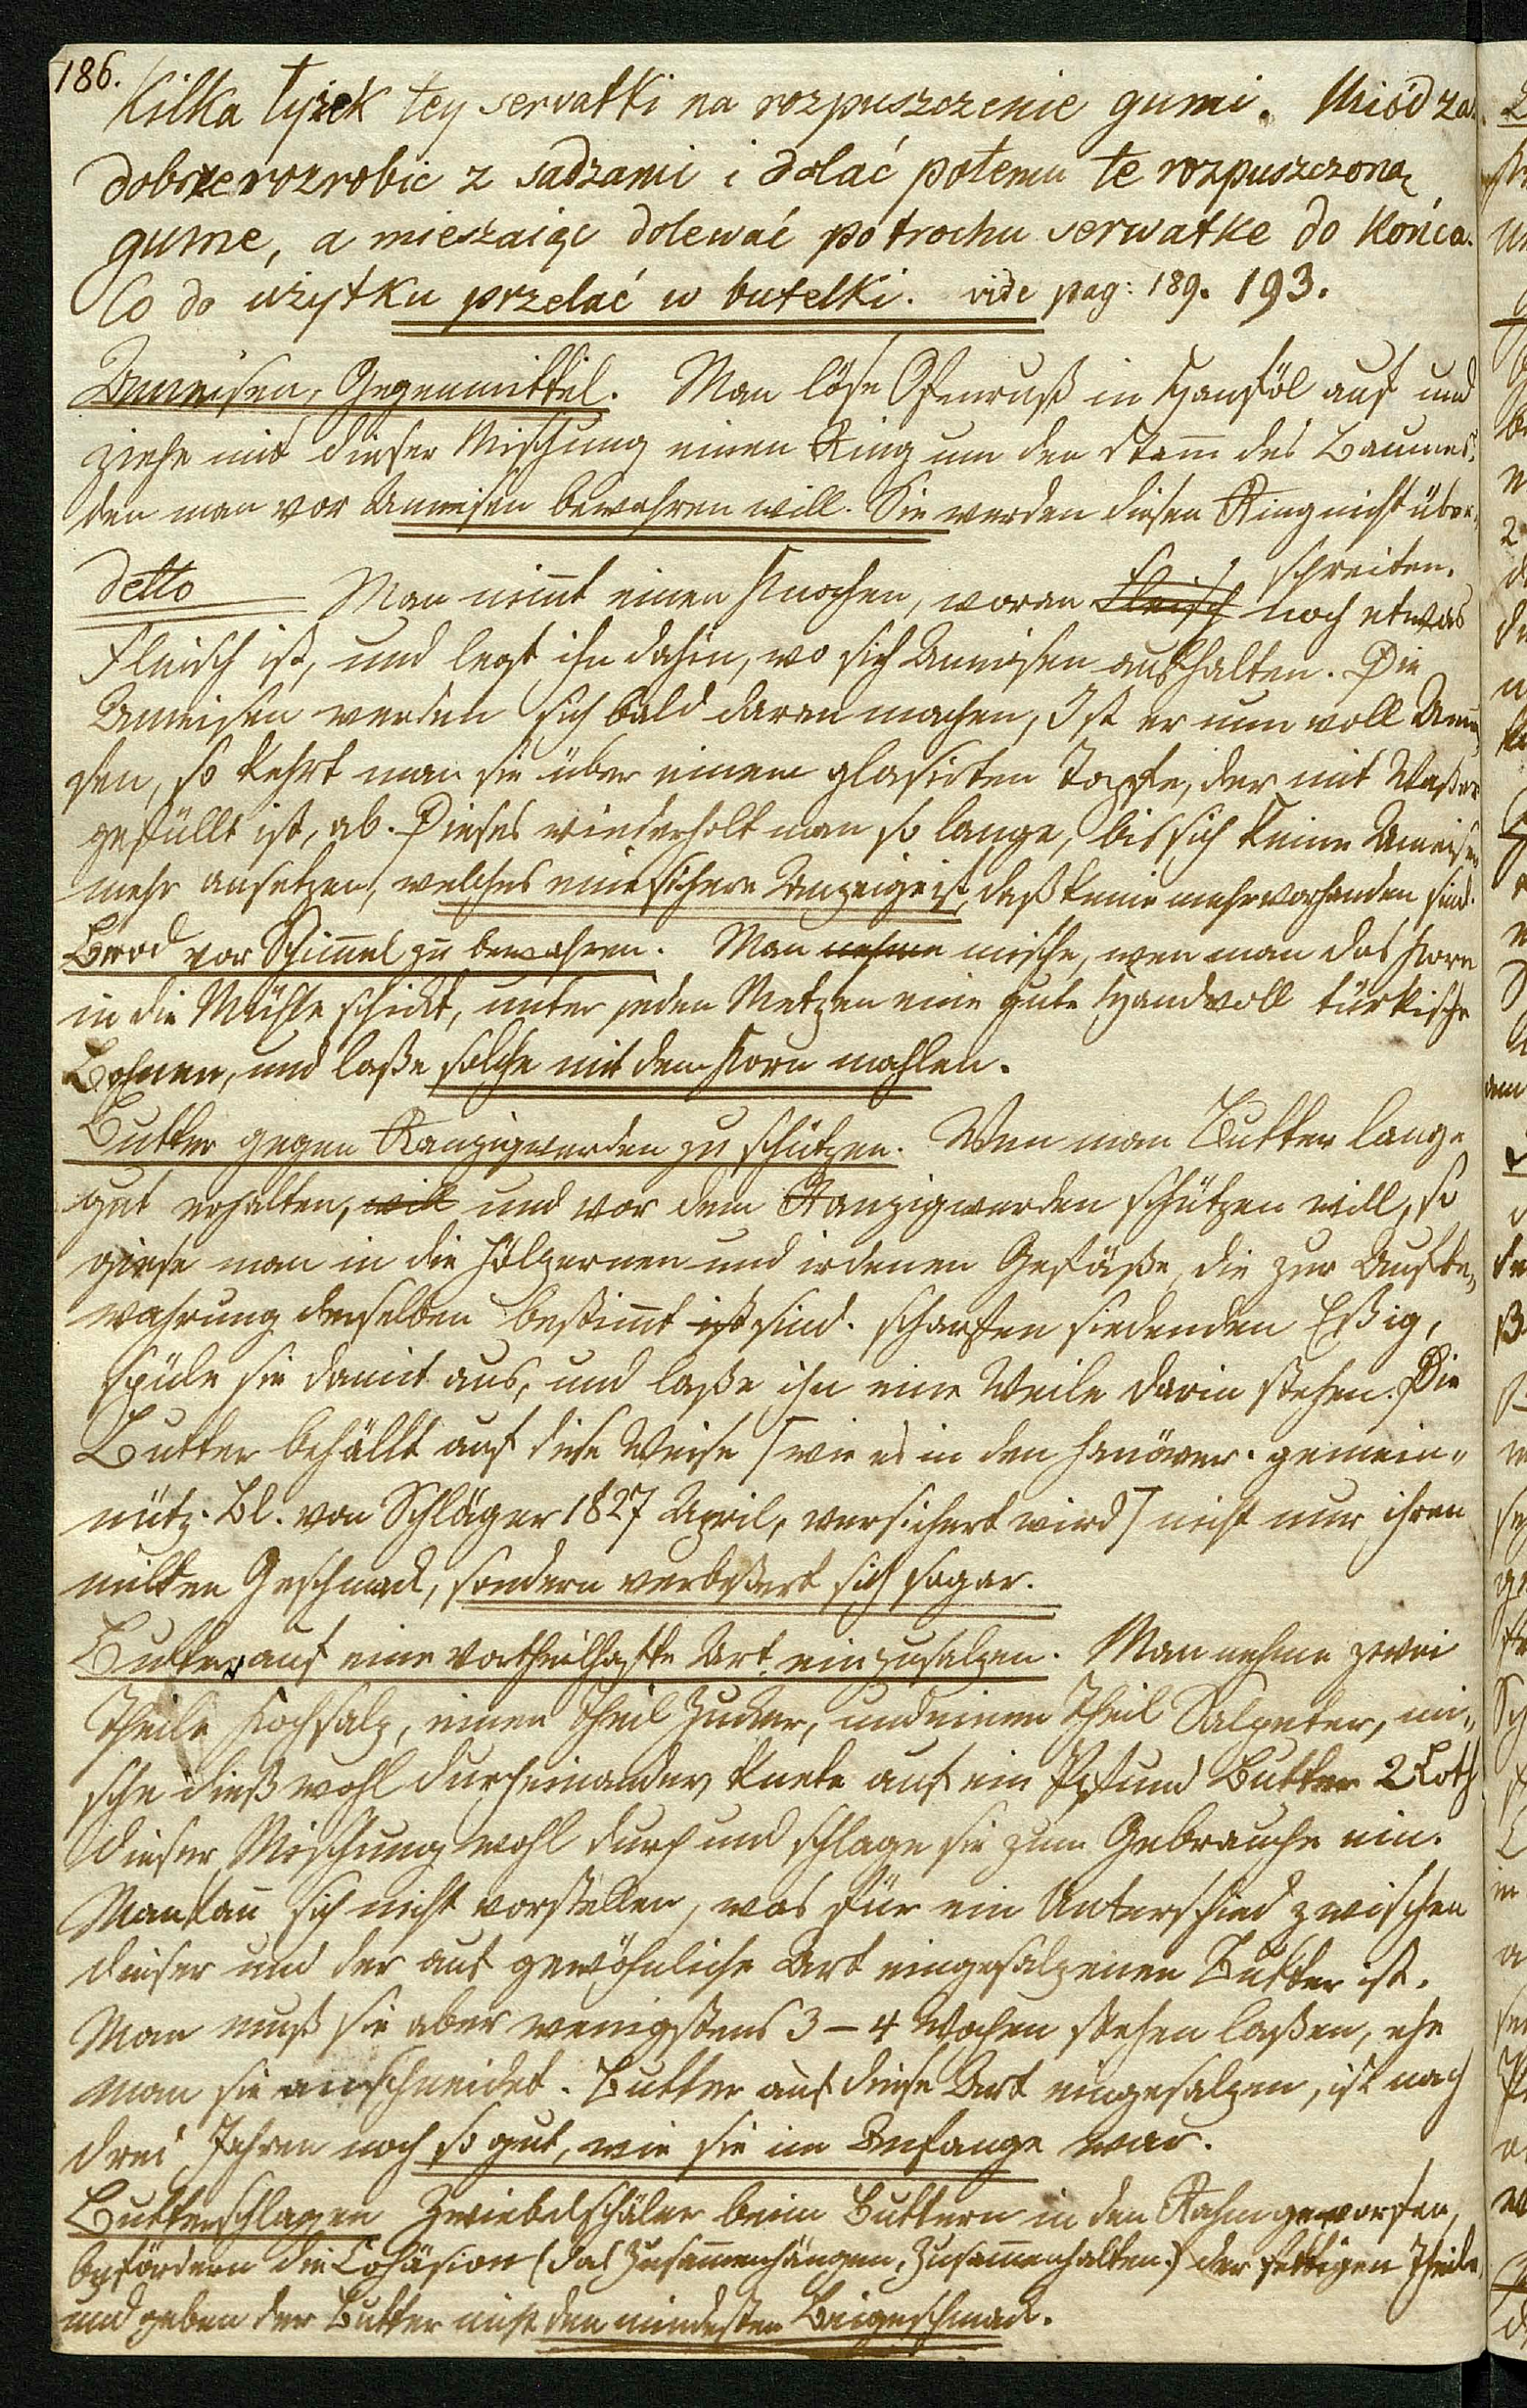 186.
Kilka łyżek tey servatki na rozpuszczenie gumi. Miód zaś
dobrze rozrobic z sadzami i dolać potemu te rozpuszczoną
gume, a mieszaiąc dolewać potrochu serwatke do końca.
Co do użytku przelać w butelki. vide pag: 189. 193.
Ameisen, Gegenmittel. Man löse Ofenruß in Hanföl auf und
ziehe mit dieser Mischung einen Ring um den Stam̄ des Baumes,
den man vor Ameisen bewahren will. Sie werden diesen Ring nicht über-
schreiten.
detto Man nim̄t einen Knochen, woran Fleisch noch etwas
Fleisch ist, und legt ihn dahin, wo sich Ameisen aufhalten. Die
Ameisen werden sich bald daran machen, Ist er nun voll Amei-
sen, so kehrt man sie über einem glasirten Topfe, der mit Waßer
gefüllt ist, ab. Dieses wiederholt man so lange, bis sich keine Ameisen
mehr ansetzen, welches eine sichere Anzeige ist, daß keine mehr vorhanden sind.
Brod vor Schim̄el zu bewahren. Man nehme mische, wen man das Korn
in die Mühle schickt, unter jeden Metzen eine gute Handvoll türkische
Bohnen, und laße solche mit dem Korn mahlen.
Butter gegen Ranzigwerden zu schützen. Wen man Butter lange
gut erhalten, will und vor dem Ranzigwerden schützen will, so
giese man in die hölzernen und irdenen Gefäße, die zur Aufbe-
wahrung derselben bestim̄t ist sind. scharfen siedenden Eßig,
spüle sie damit aus, und laße ihn eine Weile darin stehen. Die
Butter behällt auf diese Weise [wie es in den hanöver. gemein-
nütz. Bl. von Schläger 1827 April, versichert wird] nicht nur ihren
milden Geschmack, sondern verbeßert sich sogar.
Butter auf eine vortheilhafte Art einzusalzen. Man nehme zwei
Theile Kochsalz, einen Theil Zucker, und einen Theil Salpeter, mi-
sche dieß wohl durcheinander, knete auf ein Pfund Butter 2 Loth
dieser Mischung wohl durch und schlage sie zum Gebrauche ein.
Man kan̄ sich nicht vorstellen, was für ein Unterschied zwischen
dieser und der auf gewöhnliche Art eingesalzenen Butter ist.
Man muß sie aber wenigstens 3 – 4 Wochen stehen laßen, ehe
man sie anschneidet. Butter auf diese Art eingesalzen, ist nach
drei Jahren noch so gut, wie sie im Anfange war.
Butterschlagen Zwiebelschäler beim Buttern in den Rahm geworfen,
befördern die Cohäsion (das Zusam̄enhängen, Zusam̄enhalten) der fettigen Theile,
und geben der Butter nicht den mindesten Beigeschmack.